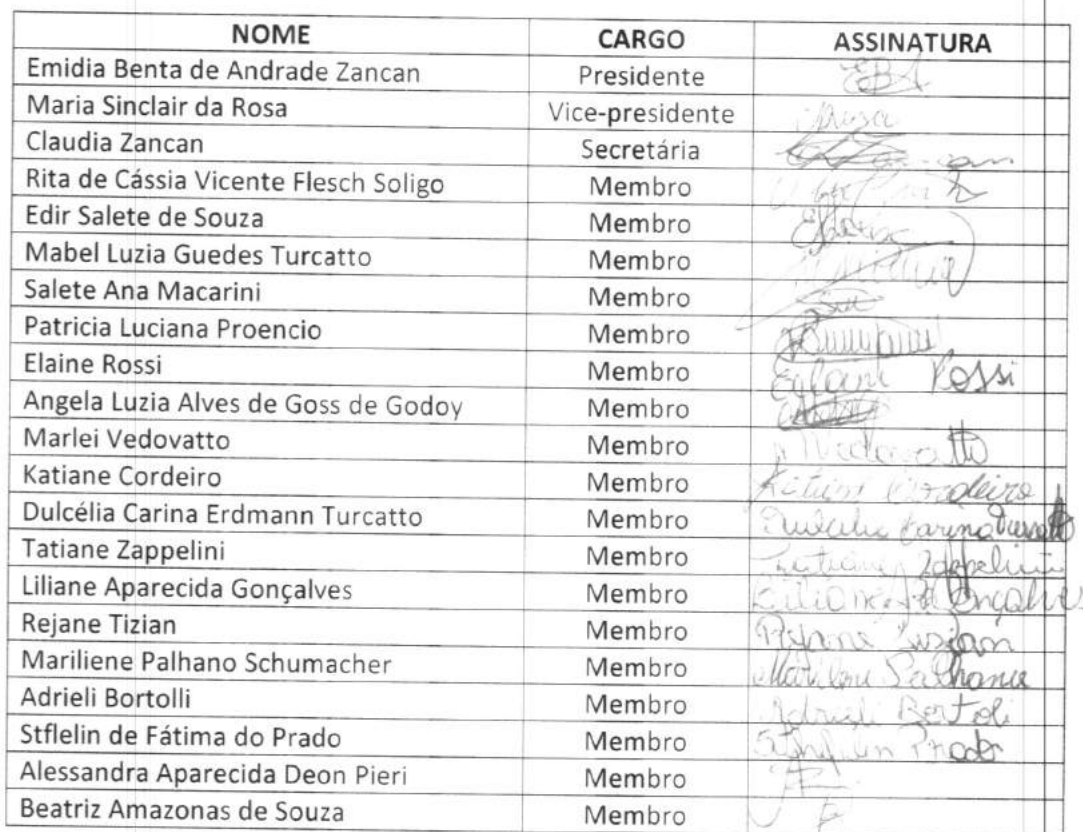 NOME CARGO ASSINATURA
Emidia Benta de Andrade Zancan Presidente EBA
Maria Sinclair da Rosa Vice-presidente
Claudia Zancan Secretária
Rita de Cássia Vicente Flesch Soligo Membro
Edir Salete de Souza Membro
Mabel Luzia Guedes Turcatto Membro
Salete Ana Macarini Membro
Patricia Luciana Proencio Membro
Elaine Rossi Membro Elaine Rossi
Angela Luzia Alves de Goss de Godoy Membro
Marlei Vedovatto Membro MVedovatto
Katiane Cordeiro Membro Katiane Cordeiro
Dulcélia Carina Erdmann Turcatto Membro Dulcélia Carina
Tatiane Zappelini Membro Tatiane Zappelini
Liliane Aparecida Gonçalves Membro Liliane Ap Gonçalves
Rejane Tizian Membro Rejane Tizian
Mariliene Palhano Schumacher Membro Palhano
Adrieli Bortolli Membro Adrieli Bortoli
Stflelin de Fátima do Prado Membro Prado
Alessandra Aparecida Deon Pieri Membro
Beatriz Amazonas de Souza Membro